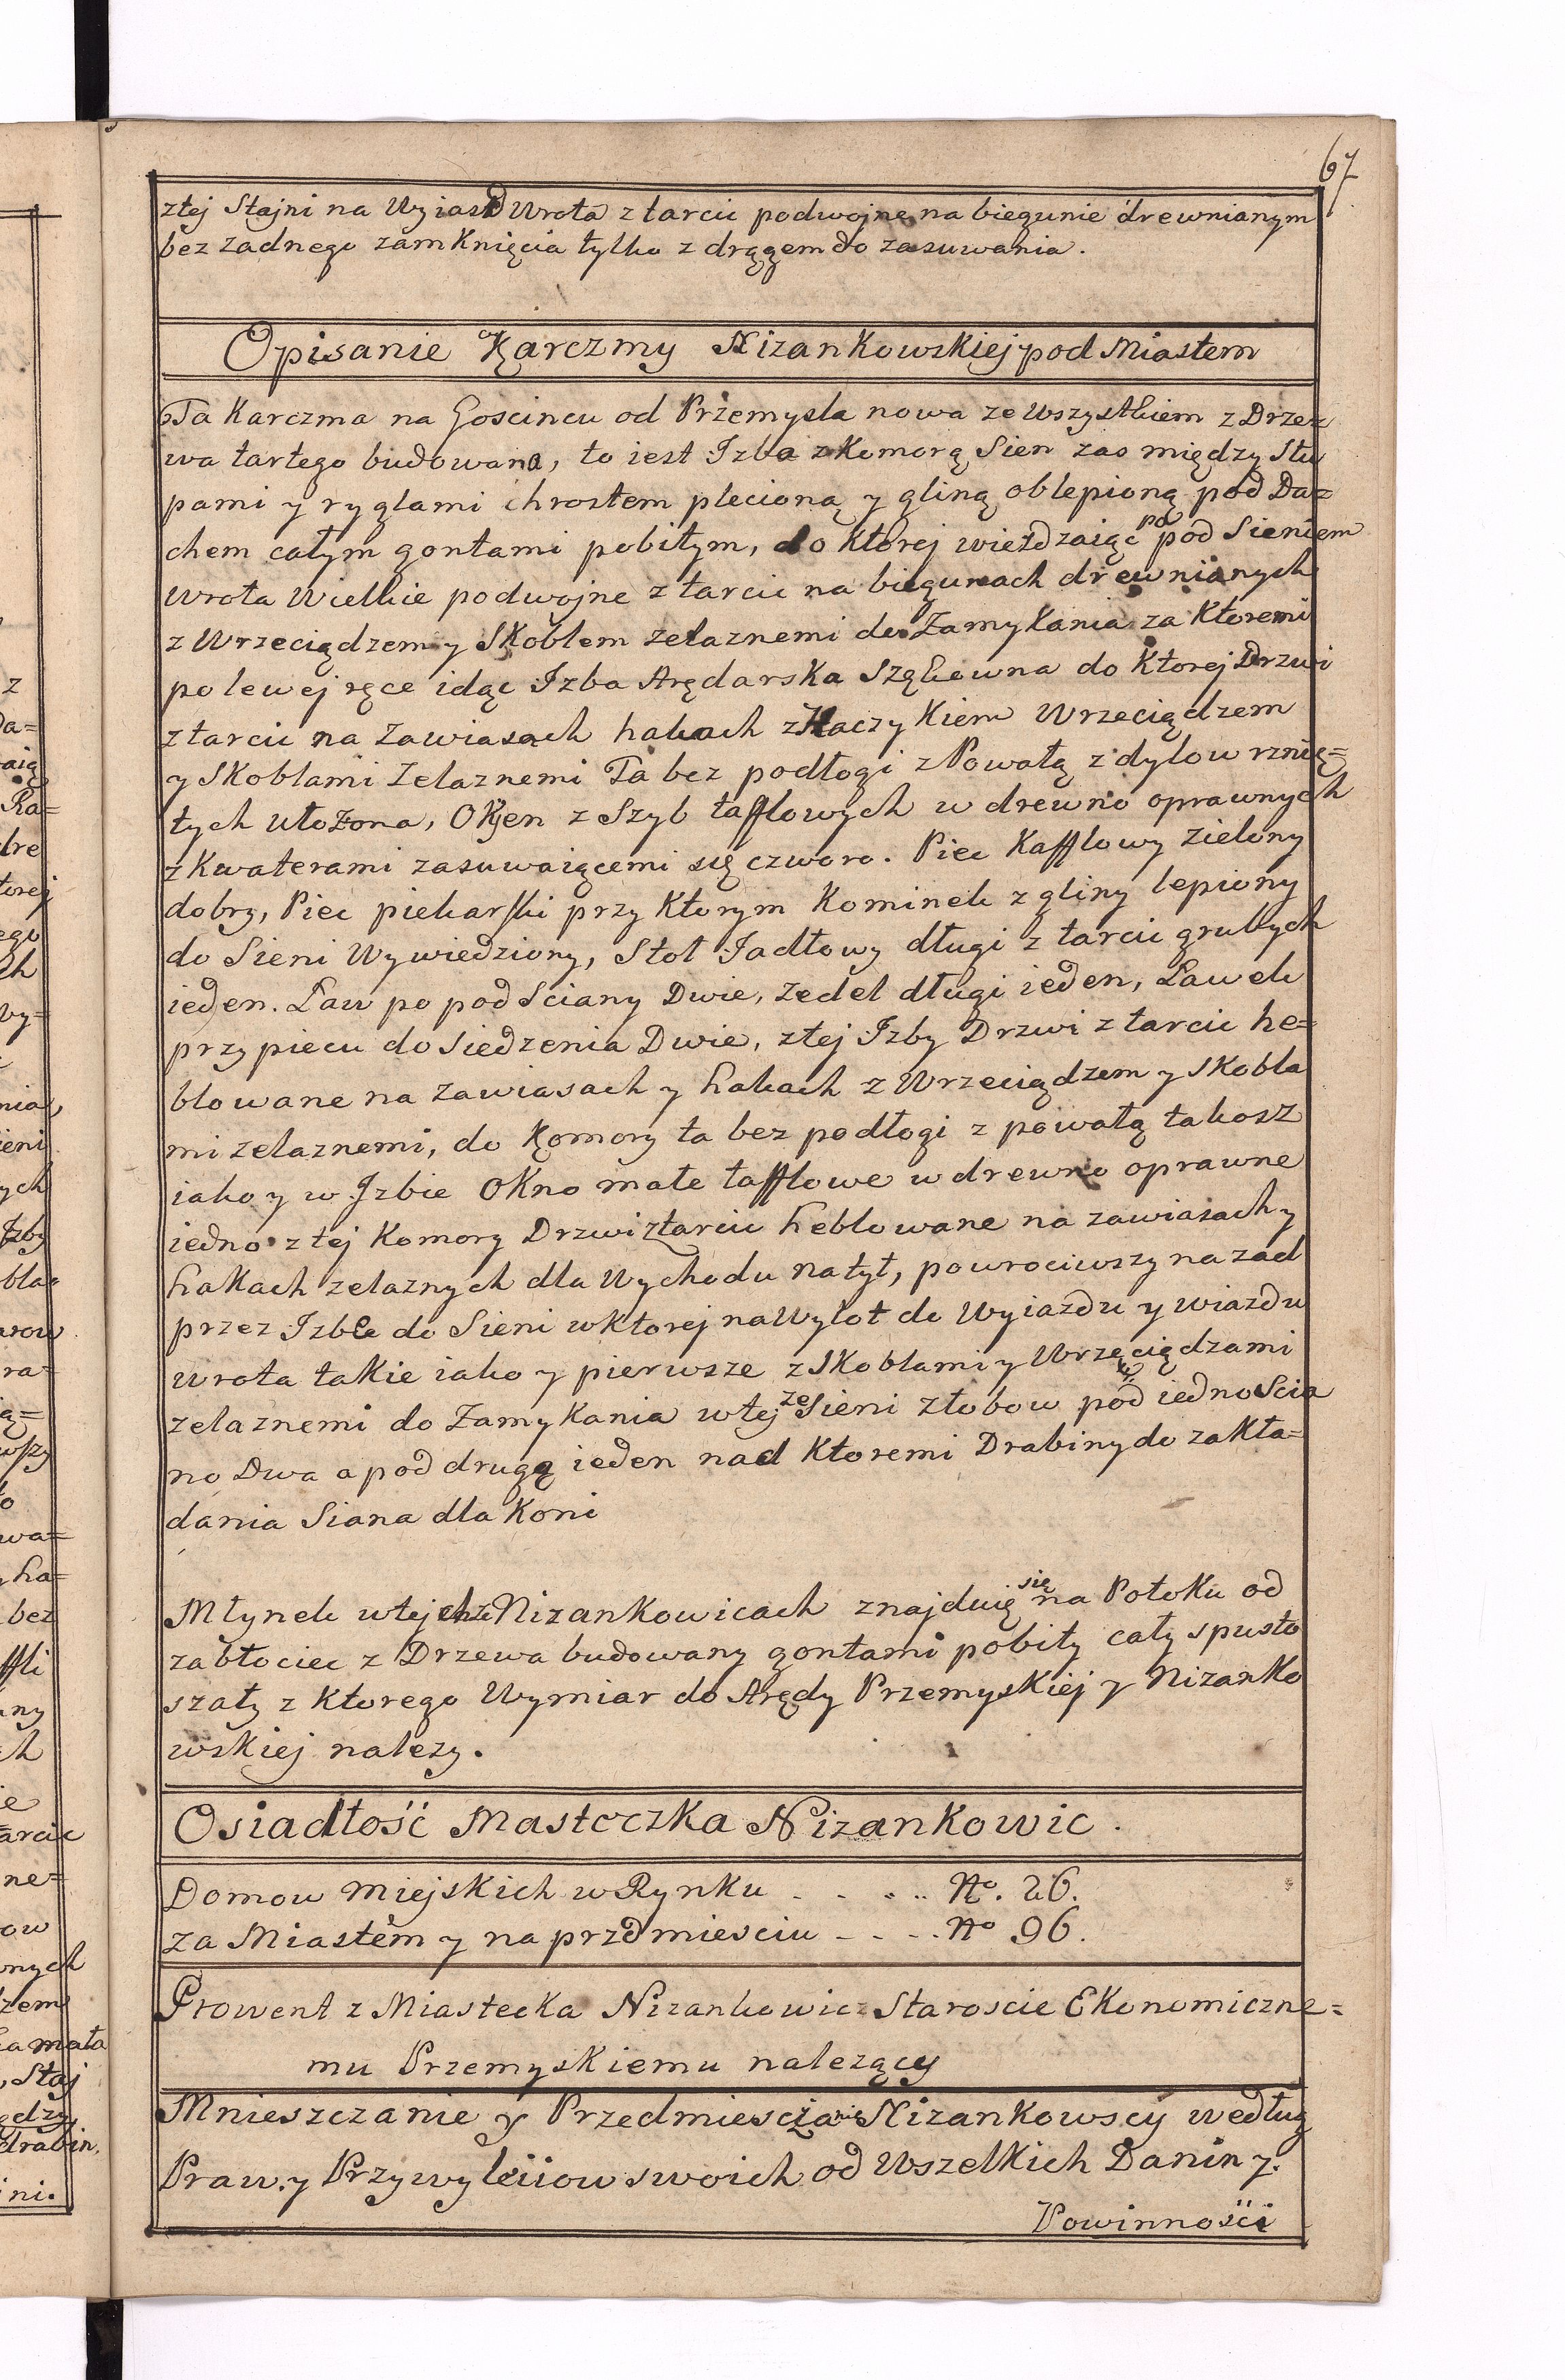 67
ztej Stajni na Wyiazd Wrota z tarcic podwojne na biegunie drewnianym
bez zadnego zamknięcia tylko z drągem do zasuwania.
Opisanie Karczmy Nizankowskiej pod Miastem
Ta Karczma na Goscincu od Przemysla nowa ze wszystkiem z Drze=
wa tartego budowana, to iest Izba z Komorą Sien zas między Słu
pami y ryglami chrostem plecioną y gliną oblepioną pod Da=
chem całym gontami pobitym, do ktorej wieżdzaiąc po pod Sieniem
Wrota Wielkie podwojne z tarcic na biegunach drewnianych
z Wrzeciądzem y Skoblem zelaznemi do Zamykania za Ktoremi
po lewej ręce idąc Izba Arędarska Szękowna do Ktorej Drzwi
z tarcic na Zawiasach hakach z Haczykiem Wrzeciądzem
y Skoblami Zelaznemi Ta bez podłogi z Powałą z dylow rznię=
tych ułożona, Okien z Szyb tafflowych w drewno oprawnych
z Kwaterami zasuwaiącemi się czworo. Piec Kafflowy zielony
dobry, Piec piekarski przy Ktorym Kominek z gliny lepiony
do Sieni Wywiedziony, Stoł Jadłowy długi z tarcic grubych
ieden. Ław po pod Sciany Dwie, zedel długi ieden, Ławek
przy piecu do Siedzenia Dwie, ztej Izby Drzwi z tarcic he=
blowane na zawiasach y hakach z Wrzeciądzem y Skobla
mi zelaznemi, do Komory ta bez podłogi z powałą takosz
iako y w Izbie Okno małe tafflowe w drewno oprawne
iedno z tej Komory Drzwi z tarcic heblowane na zawiasach y
hakach zelaznych dla Wychodu na tył, powrociwszy na zad
przez Izbe do Sieni w ktorej na Wylot do Wyiazdu y wiazdu
wrota takie iako y pierwsze z Skoblami y Wrzeciądzami
zelaznemi do Zamykania w tej ze Sieni złobow pod iedno Scia
no Dwa a pod drugą ieden nad Ktoremi Drabiny do zakła=
dania Siana dla Koni
Młynek w tychze Nizankowicach znajduię się na Potoku od
zabłociec z Drzewa budowany gontami pobity cały spusto
szały z Ktorego Wymiar do Arędy Przemyskiej y Nizanko
wskiej nalezy.
Osiadłość Masteczka Nizankowic.
Domow Miejskich w Rynku . . . . . No. 26.
za Miastem y na przdmiesciu . . . . No 96.
Prowent z Miastecka Nizankowicz Staroscie Ekonomiczne=
mu Przemyskiemu nalezący
Mnieszczanie y Przedmiesczanie Nizankowscy według
Praw y Przywyleiiow swoich od Wszelkich Danin y.
Powinności